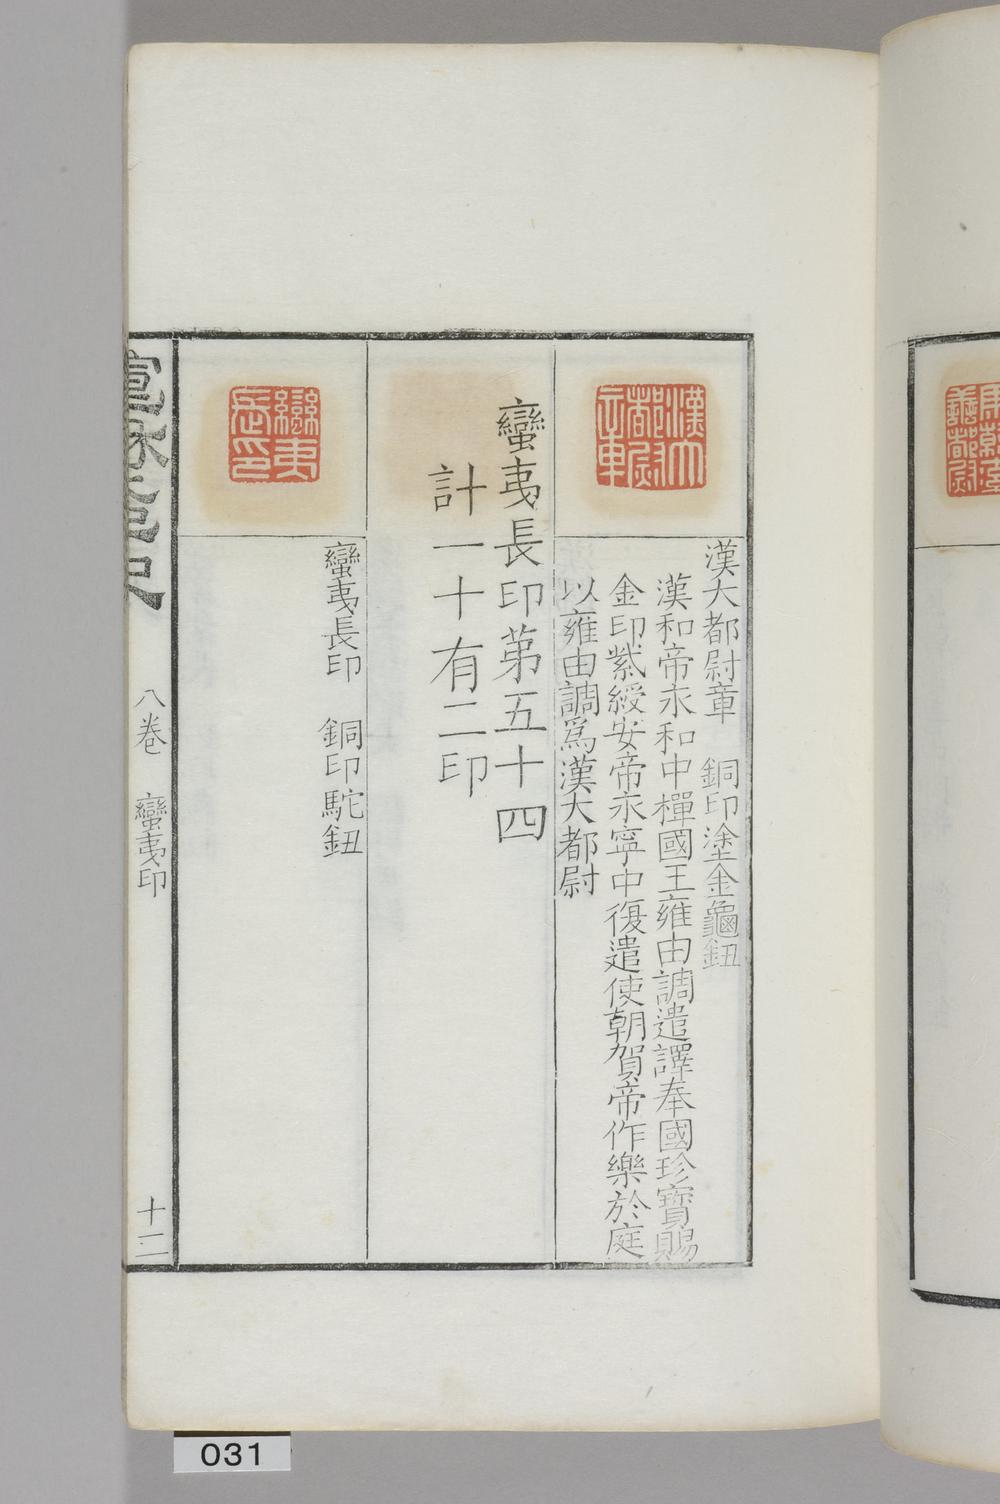 漢大都尉章　銅印塗金龜鈕
漢和帝永和中樿國王雍由調遣譯奉國珍寶賜
金印紫綬安帝永寧中復遣使朝賀帝作樂於庭
以雍由調爲漢大都尉
蠻夷長印第五十四
計一十有二印
蠻夷
長印
蠻夷長印　銅印駝鈕
八卷　蠻夷印　十二
031